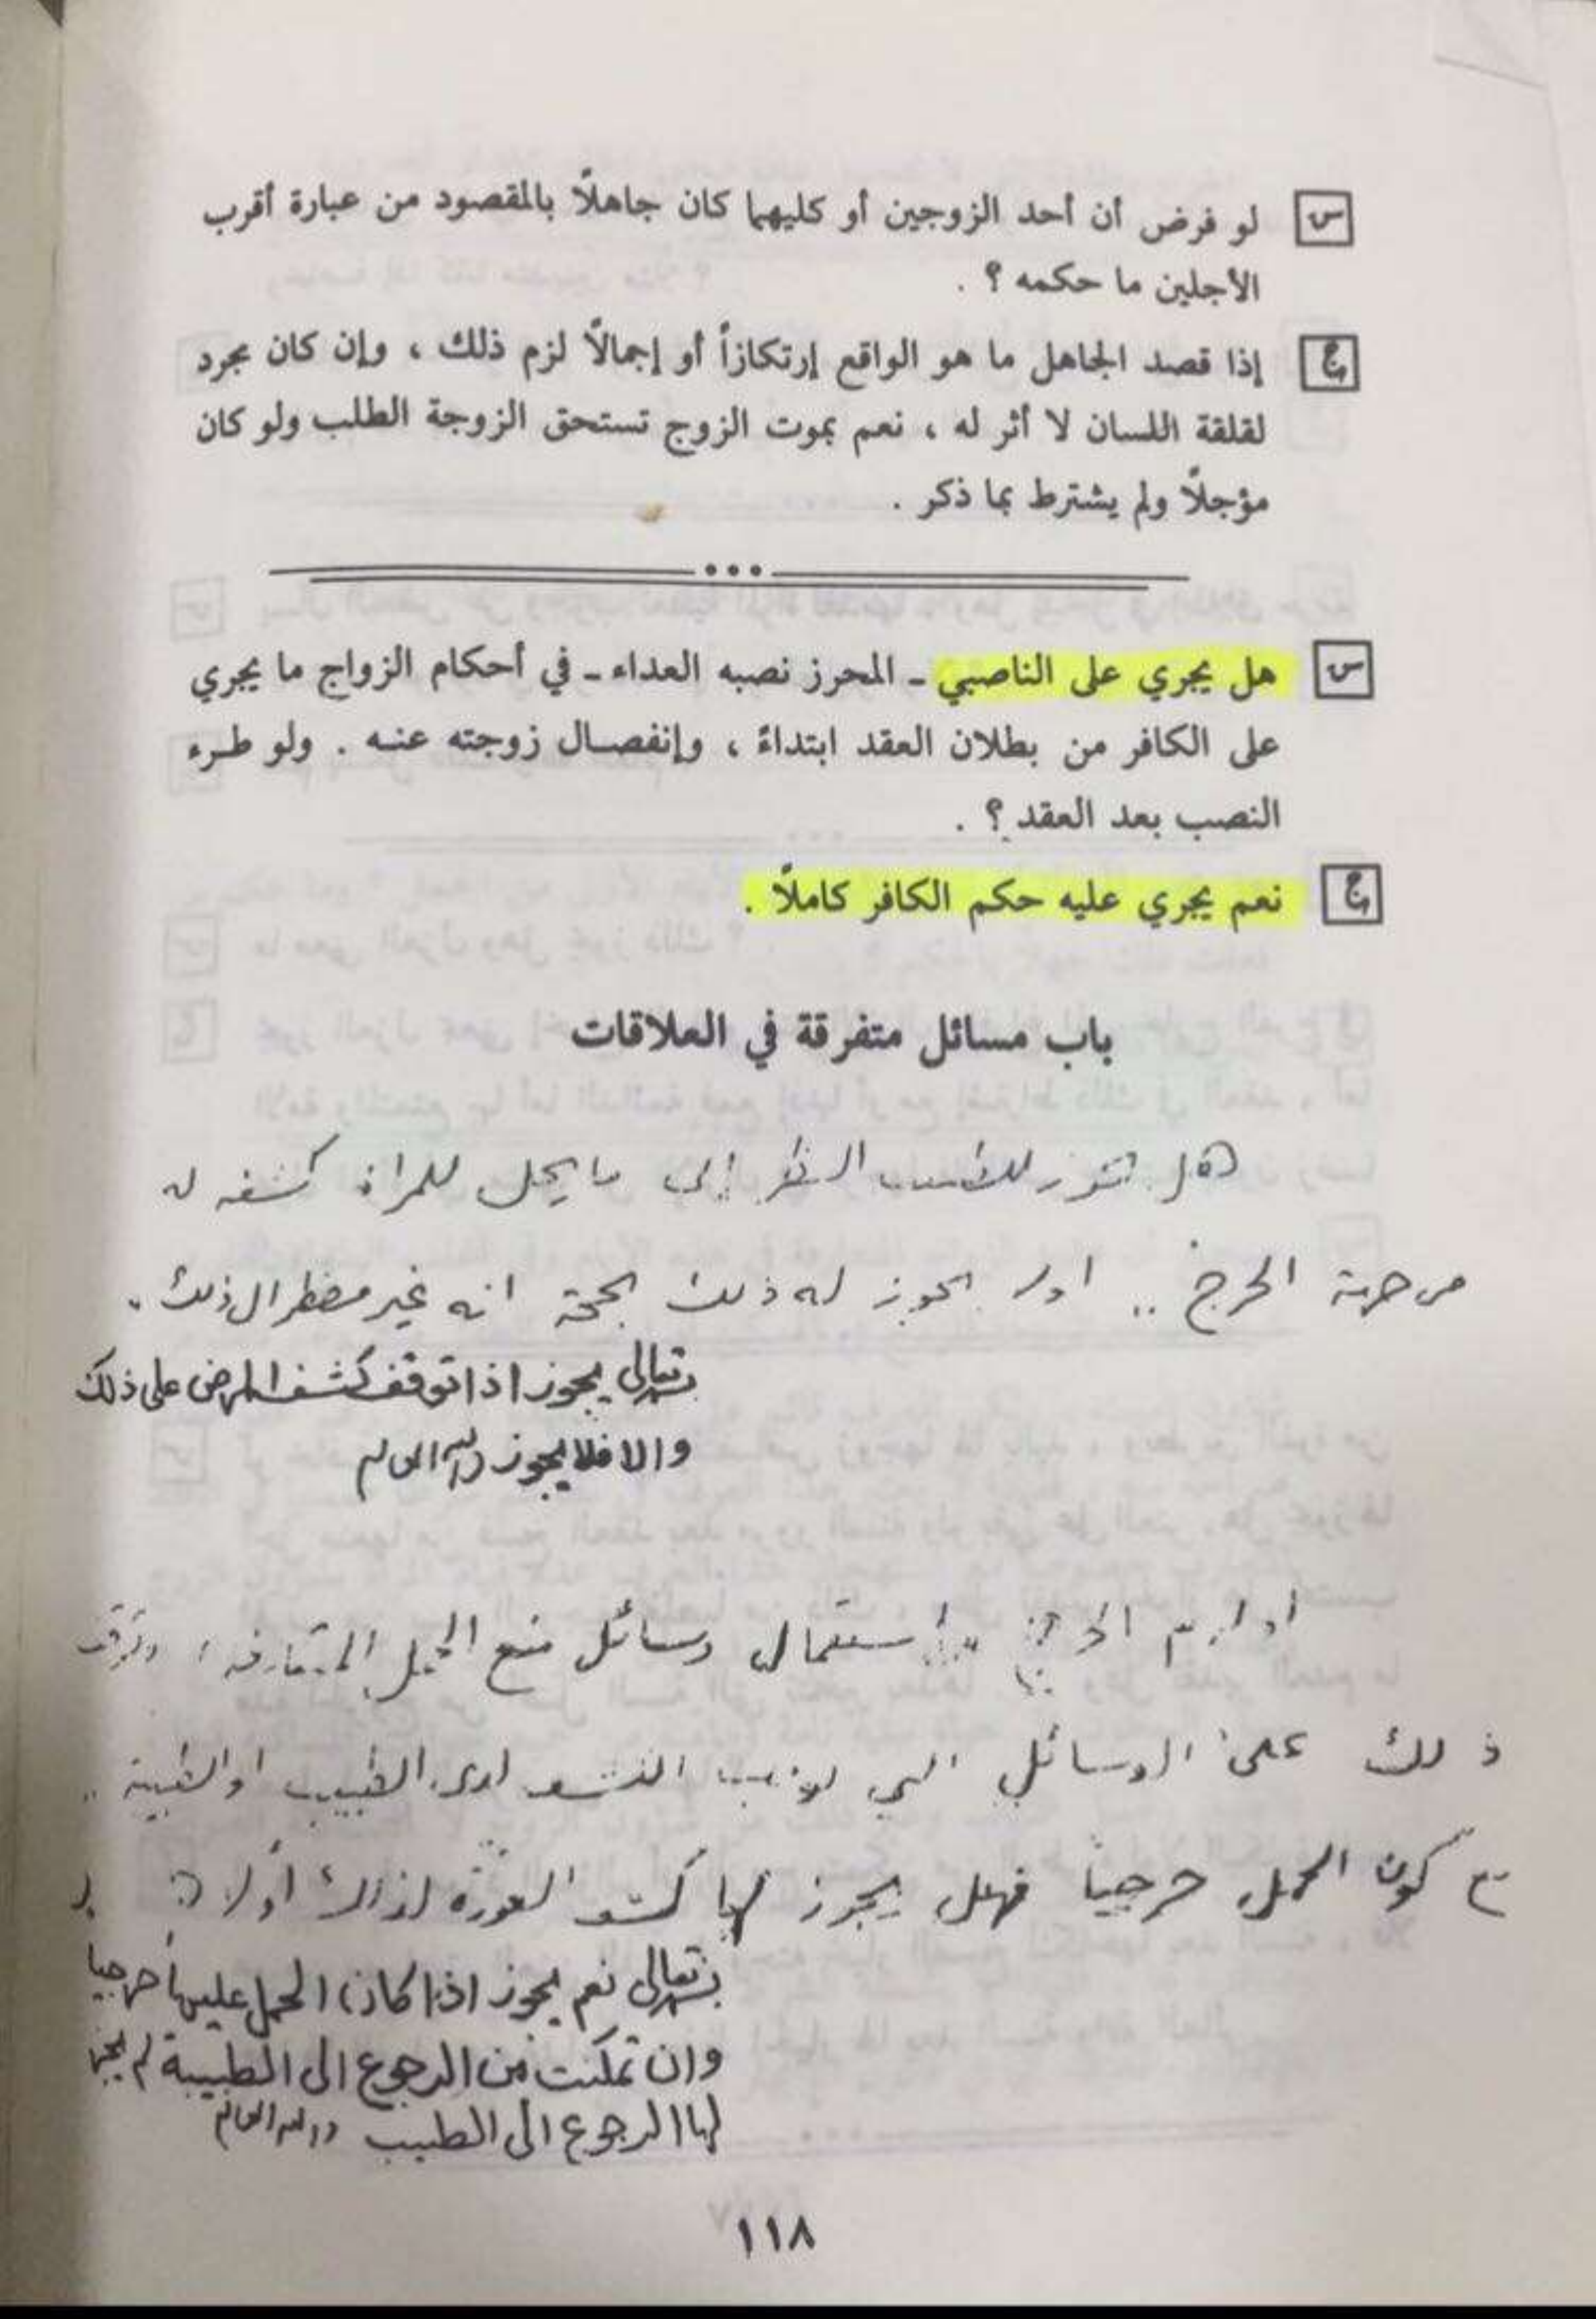 س لو فرض أن أحد الزوجين أو كليهما كان جاهلًا بالمقصود من عبارة أقرب
الأجلين ما حكمه ؟ .
ج إذا قصد الجاهل ما هو الواقع إرتكازاً أو إجمالًا لزم ذلك ، وإن كان مجرد
لقلقة اللسان لا أثر له ، نعم بموت الزوج تستحق الزوجة الطلب ولو كان
مؤجلًا ولم يشترط بما ذكر .
س هل يجري على الناصبي - المحرز نصبه العداء - في أحكام الزواج ما يجري
على الكافر من بطلان العقد ابتداءً ، وإنفصال زوجته عنه . ولو طرء
النصب بعد العقد ؟ .
ج نعم يجري عليه حكم الكافر كاملًا .
باب مسائل متفرقة في العلاقات
هل للطبيب النظر إلى ما يحل للمرأة كشفه له
من جهة الحرج .. او لا يجوز له ذلك بحجة انه غير مضطر الى ذلك .
بسمه تعالى يجوز اذا توقف كشف المرض على ذلك
والا فلا يجوز والله العالم
استعمال وسائل منع الحمل المتعارفة ،
ذلك على الوسائل التي الكشف لدى الطبيب او الطبيبة ..
مع كون الحمل حرجياً فهل يجوز لها كشف العورة لذلك أو لا ؟
بسمه تعالى نعم يجوز اذا كان الحمل عليها حرجيا
وان تمكنت من الرجوع الى الطبيبة لم يجز
لها الرجوع الى الطبيب والله العالم
١١٨